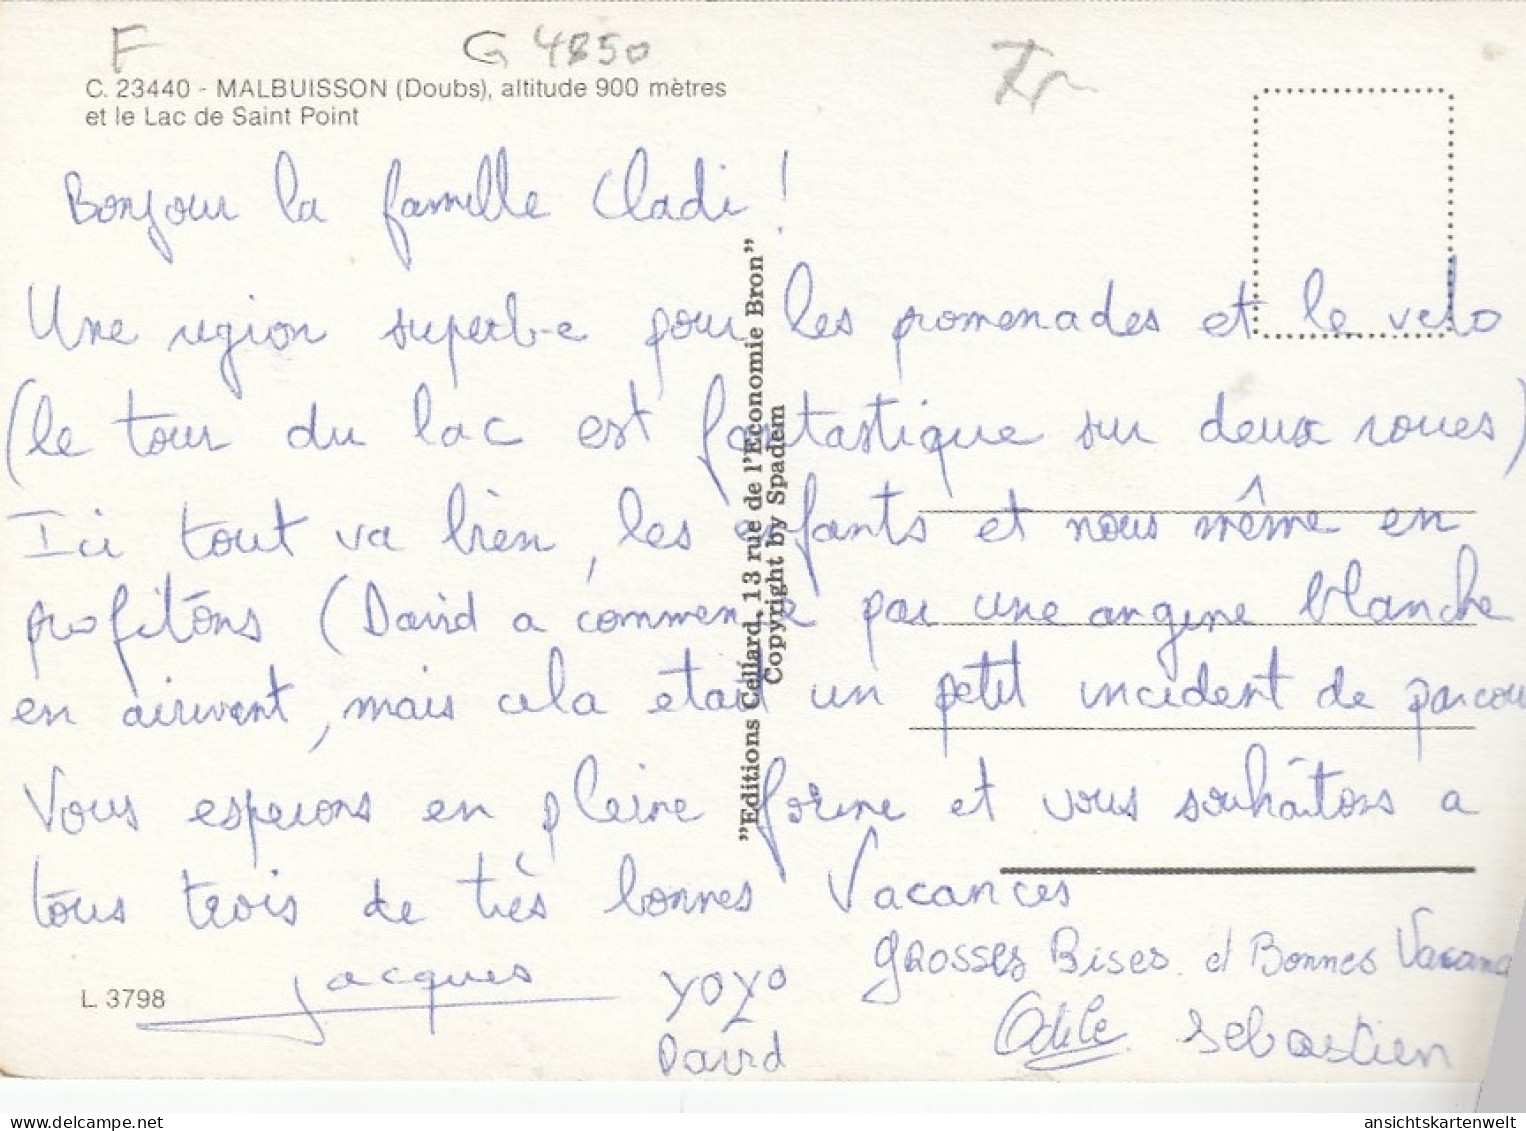 F G 4850 Fr
C. 23440 - MALBUISSON (Doubs), altitude 900 mètres
et le Lac de Saint Point
Bonjour la famille Cladi !
Une region superbe pour les promenades et le velo
(le tour du lac est fantastique sur deux roues)
Ici tout va bien, les enfants et nous même en
profitons (David a commencé par une angine blanche
en arrivant, mais cela etait un petit incident de parcou
Vous esperons en pleine forme et vous souhaitons a
tous trois de très bonnes Vacances
Grosses Bises et Bonnes Vacanc
Jacques
YOYO
David
Odile
Sebastien
L 3798
"Editions Cellard, 13 rue de l'Economie Bron"
Copyright by Spadem
ansichtskartenwelt